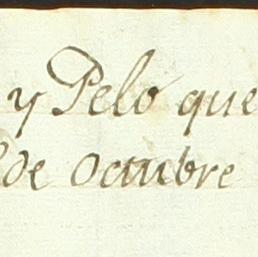 y Pelo que
de Octubre